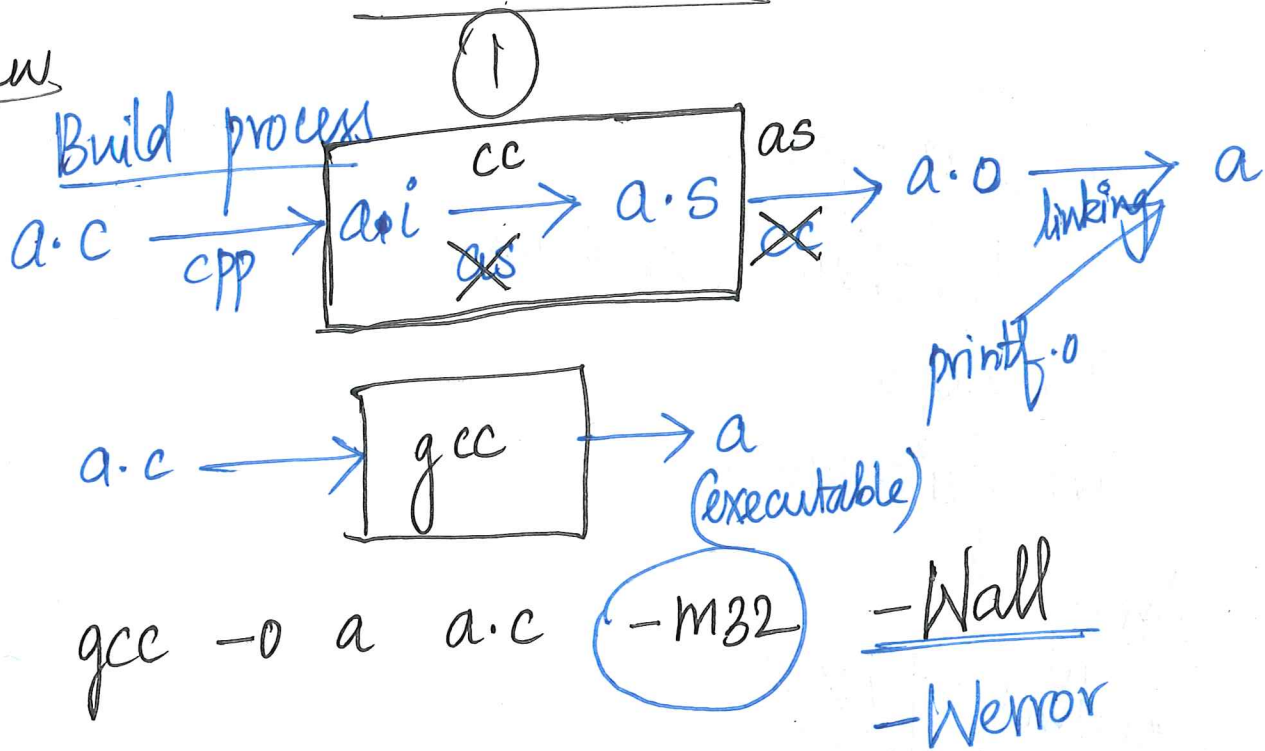 1
Build process
cc
as
a.c
cpp
a.i
as
a.s
cc
a.o
linking
a
printf.o
a.c
gcc
a
(executable)
gcc -o a a.c -m32 -Wall
-Werror